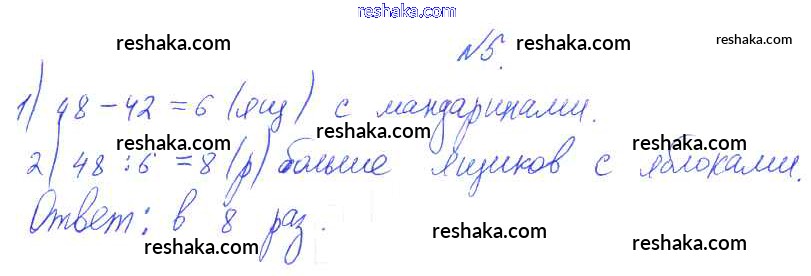 reshaka.com
№5.
reshaka.com reshaka.com reshaka.com
1) 48 - 42 = 6 (ящ) с мандаринами.
reshaka.com reshaka.com reshaka.com
2) 48 : 6 = 8 (р) больше ящиков с яблоками.
Ответ: в 8 раз.
reshaka.com reshaka.com reshaka.com